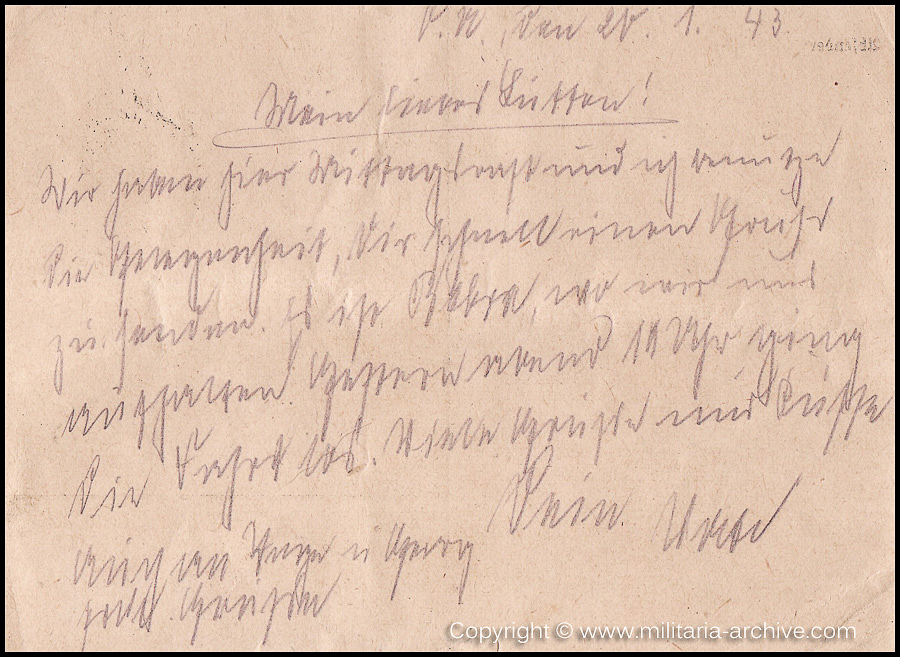 O.U., den 20. 1. 43.
Mein liebes !
Wir haben hier Mittagsrast und ich benutze
die Gelegenheit, Dir schnell einen Gruß
zu senden. Es ist Bebra, wo wir uns
aufhalten. Gestern abend 10 Uhr ging
die Fahrt los. Viele Grüße und Küsse
Dein
auch an u. Georg
Grüße
Copyright © www.militaria-archive.com